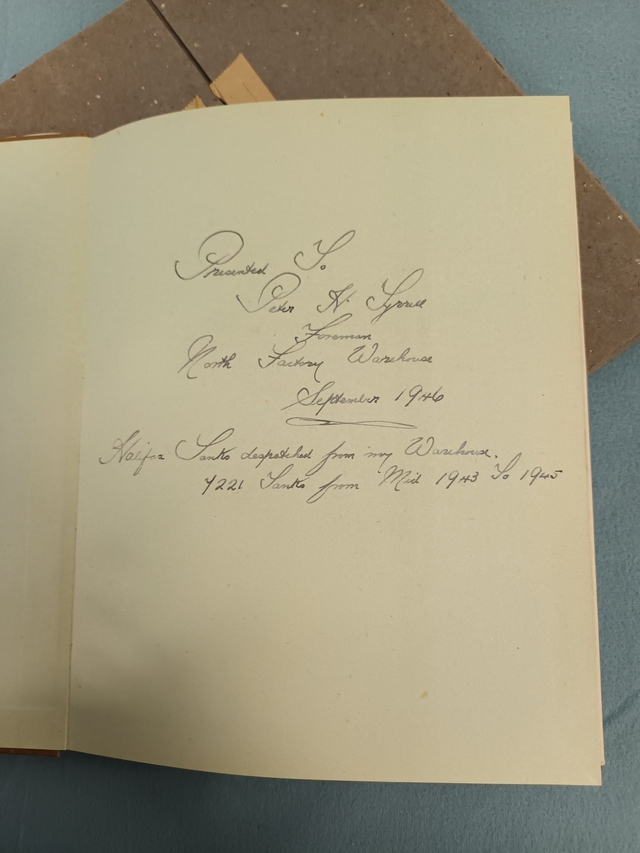 Presented To
Peter H. Tyrrell
Foreman
North Factory Warehouse
September 1946
Halifax Tanks despatched from my Warehouse.
7221 Tanks from Mid 1943 To 1945